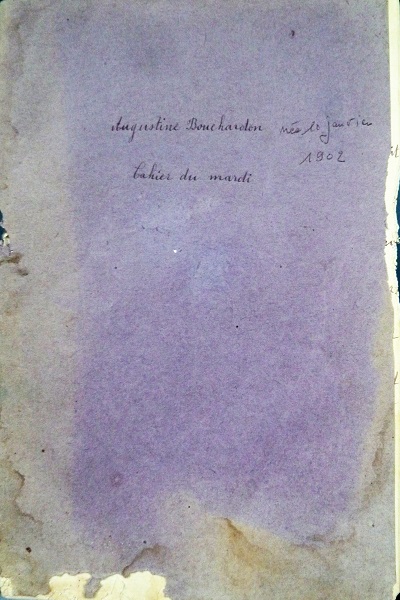 Augustine Bouchardon née 10 janvier
1902
Cahier du mardi